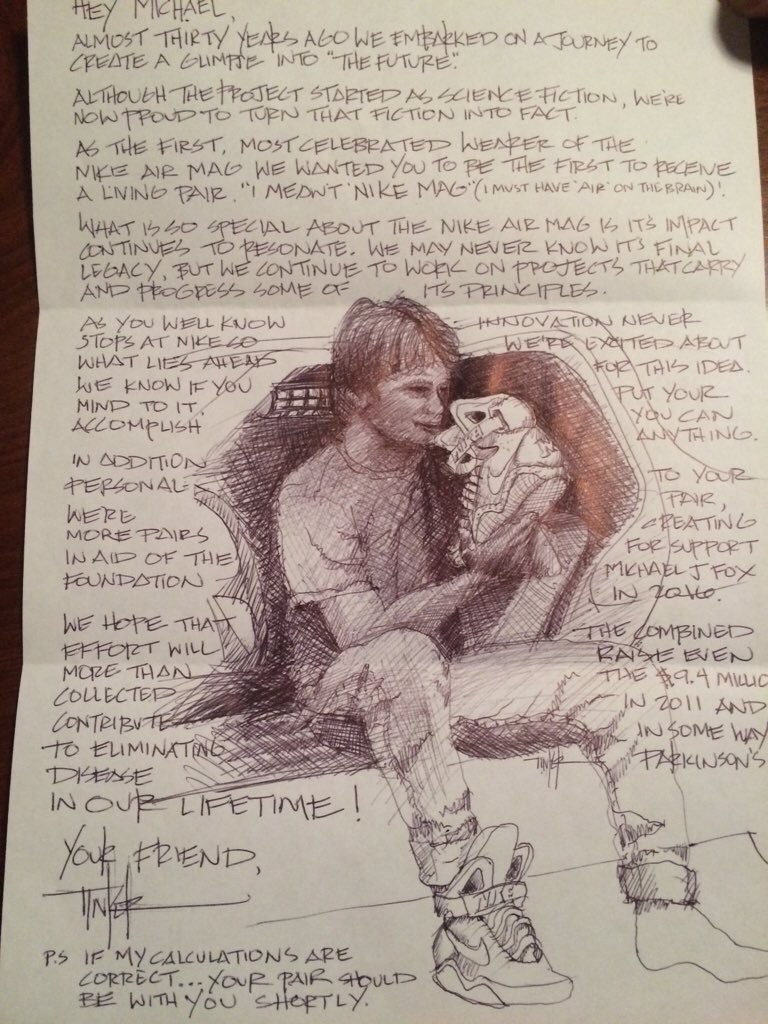 HEY MICHAEL,
ALMOST THIRTY YEARS AGO WE EMBARKED ON A JOURNEY TO
CREATE A GLIMPSE INTO "THE FUTURE".
ALTHOUGH THE PROJECT STARTED AS SCIENCE FICTION, WE'RE
NOW PROUD TO TURN THAT FICTION INTO FACT.
AS THE FIRST, MOST CELEBRATED WEARER OF THE
NIKE AIR MAG WE WANTED YOU TO BE THE FIRST TO RECEIVE
A LIVING PAIR. "I MEANT 'NIKE MAG" (I MUST HAVE 'AIR' ON THE BRAIN)!
WHAT IS SO SPECIAL ABOUT THE NIKE AIR MAG IS IT'S IMPACT
CONTINUES TO RESONATE. WE MAY NEVER KNOW IT'S FINAL
LEGACY, BUT WE CONTINUE TO WORK ON PROJECTS THAT CARRY
AND PROGRESS SOME OF ITS PRINCIPLES.
AS YOU WELL KNOW INNOVATION NEVER
STOPS AT NIKE SO WE'RE EXCITED ABOUT
WHAT LIES AHEAD FOR THIS IDEA.
WE KNOW IF YOU PUT YOUR
MIND TO IT, YOU CAN
ACCOMPLISH ANYTHING.
IN ADDITION TO YOUR
PERSONAL PAIR,
WE'RE CREATING
MORE PAIRS FOR SUPPORT
IN AID OF THE MICHAEL J FOX
FOUNDATION IN 2016.
WE HOPE THAT THE COMBINED
EFFORT WILL RAISE EVEN
MORE THAN THE $9.4 MILLIO
COLLECTED IN 2011 AND
CONTRIBUTE IN SOME WAY
TO ELIMINATING PARKINSON'S
DISEASE
IN OUR LIFETIME!
YOUR FRIEND,
TINKER
P.S IF MY CALCULATIONS ARE
CORRECT... YOUR PAIR SHOULD
BE WITH YOU SHORTLY.
TINKER
NIKE